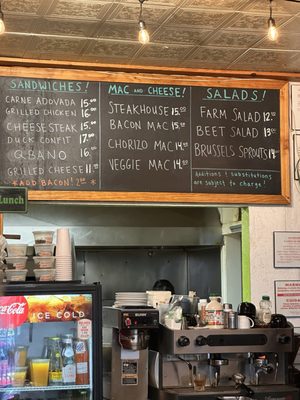 SANDWICHES!
CARNE ADOVADA 15.00
GRILLED CHICKEN 16.00
CHEESE STEAK 15.00
DUCK CONFIT 17.00
QBANO 16.
GRILLED CHEESE 11.00
*ADD BACON! 2.00*
MAC AND CHEESE!
STEAKHOUSE 15.00
BACON MAC 15.
CHORIZO MAC 14.
VEGGIE MAC 14.
SALADS!
FARM SALAD 12.
BEET SALAD 13.
BRUSSELS SPROUTS 14.
Additions & substitutions
are subject to change!
Lunch
Coca-Cola
ICE COLD